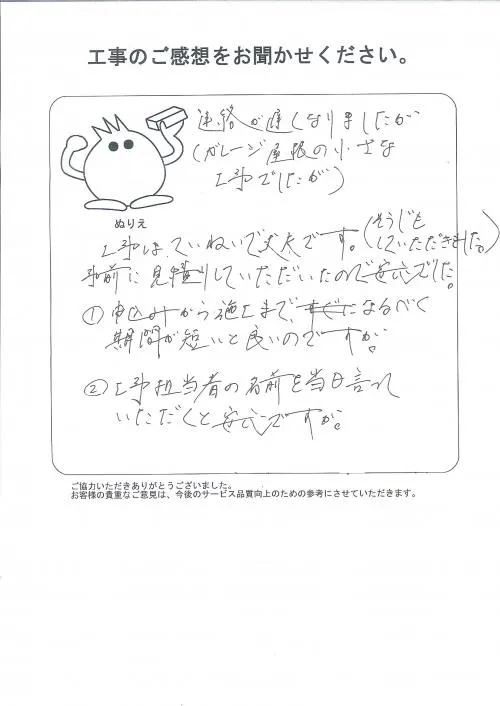 工事のご感想をお聞かせください。
連絡が遅くなりましたが
(ガレージ屋根の小さな
工事でしたが)
ぬりえ
工事は、ていねいで丈夫です。(そうじも
していただきました。)
事前に見積りしていただいたので安心でした。
①申込みから施工まで、すぐになるべく
期間が短いと良いのですが。
②工事担当者の名前を当日言って
いただくと安心ですが。
ご協力いただきありがとうございました。
お客様の貴重なご意見は、今後のサービス品質向上のための参考にさせていただきます。